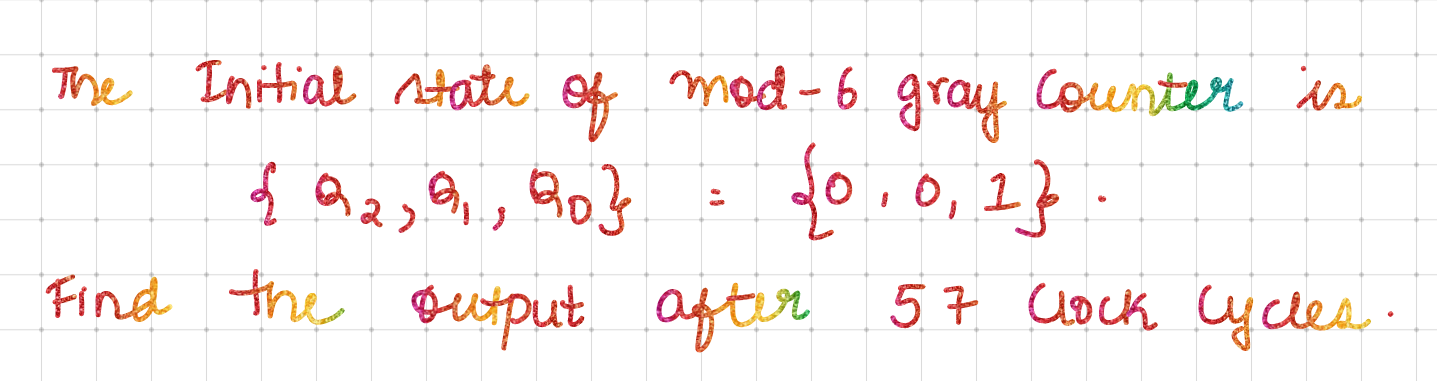 The Initial state of mod-6 gray Counter is
{ Q₂, Q₁, Q₀} = {0, 0, 1}.
Find the output after 57 Clock Cycles.